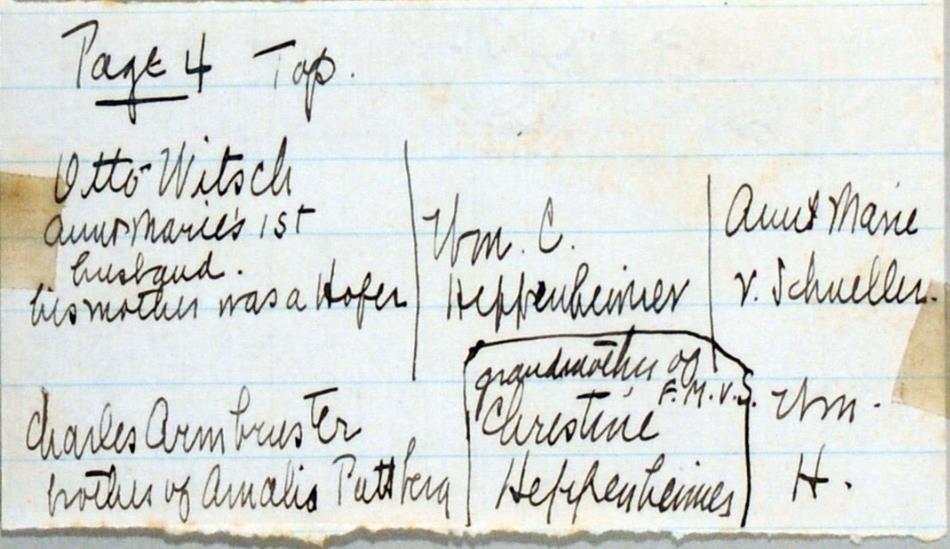 Page 4 Top.
Otto Witsch
Aunt Marie's 1st
husband.
his mother was a Hofer
Wm. C.
Heppenheimer
Aunt Marie
v. Schueller.
Charles Armbruster
brother of Amalia Puttberg
grandmother of
F. M. v. S.
Christine
Heppenheimer
Wm.
H.